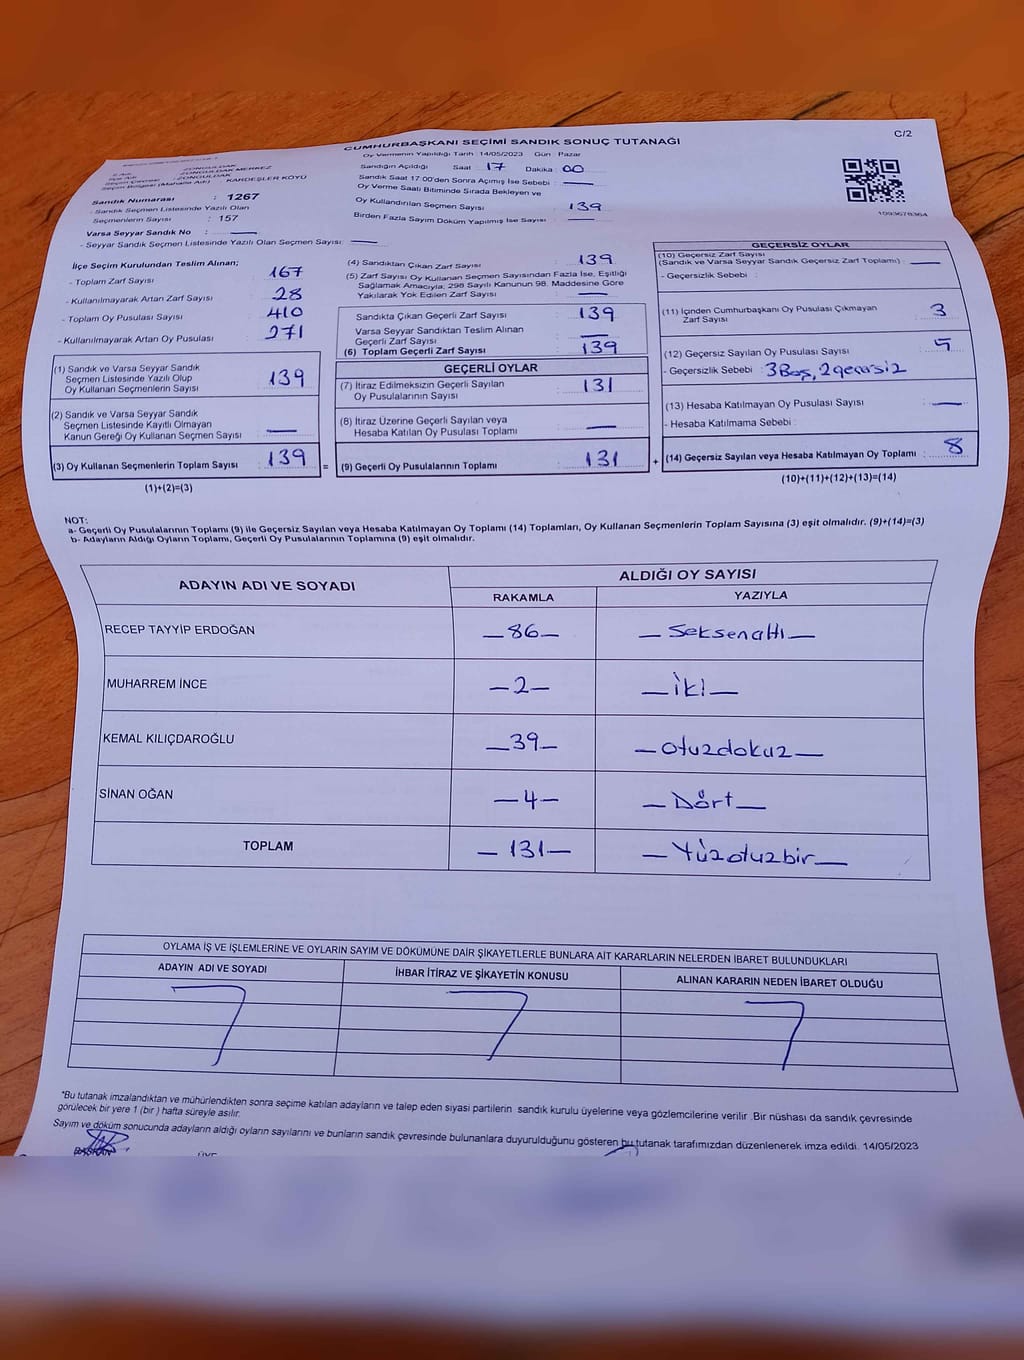 C/2
CUMHURBAŞKANI SEÇİMİ SANDIK SONUÇ TUTANAĞI
Oy Vermenin Yapıldığı Tarih : 14/05/2023 Gün : Pazar
Sandığın Açıldığı Saat 17 Dakika 00
Sandık Saat 17:00'den Sonra Açımış İse Sebebi :
Oy Verme Saati Bitiminde Sırada Bekleyen ve
Oy Kullandırılan Seçmen Sayısı : 139
Birden Fazla Sayım Döküm Yapılmış İse Sayısı :
1093678364
İl Adı : ZONGULDAK
İlçe Adı : ZONGULDAK MERKEZ
Seçim Çevresi : ZONGULDAK
Seçim Bölgesi (Mahalle Adı) : KARDEŞLER KÖYÜ
Sandık Numarası : 1267
- Sandık Seçmen Listesinde Yazılı Olan
Seçmenlerin Sayısı : 157
Varsa Seyyar Sandık No :
- Seyyar Sandık Seçmen Listesinde Yazılı Olan Seçmen Sayısı:
İlçe Seçim Kurulundan Teslim Alınan;
- Toplam Zarf Sayısı : 167
- Kullanılmayarak Artan Zarf Sayısı : 28
- Toplam Oy Pusulası Sayısı : 410
- Kullanılmayarak Artan Oy Pusulası : 271
(1) Sandık ve Varsa Seyyar Sandık
Seçmen Listesinde Yazılı Olup
Oy Kullanan Seçmenlerin Sayısı : 139
(2) Sandık ve Varsa Seyyar Sandık
Seçmen Listesinde Kayıtlı Olmayan
Kanun Gereği Oy Kullanan Seçmen Sayısı :
(3) Oy Kullanan Seçmenlerin Toplam Sayısı : 139 =
(1)+(2)=(3)
(4) Sandıktan Çıkan Zarf Sayısı : 139
(5) Zarf Sayısı Oy Kullanan Seçmen Sayısından Fazla İse, Eşitliği
Sağlamak Amacıyla; 298 Sayılı Kanunun 98. Maddesine Göre
Yakılarak Yok Edilen Zarf Sayısı :
Sandıkta Çıkan Geçerli Zarf Sayısı : 139
Varsa Seyyar Sandıktan Teslim Alınan
Geçerli Zarf Sayısı :
(6) Toplam Geçerli Zarf Sayısı : 139
GEÇERLİ OYLAR
(7) İtiraz Edilmeksizin Geçerli Sayılan
Oy Pusulalarının Sayısı : 131
(8) İtiraz Üzerine Geçerli Sayılan veya
Hesaba Katılan Oy Pusulası Toplamı :
(9) Geçerli Oy Pusulalarının Toplamı : 131 +
GEÇERSİZ OYLAR
(10) Geçersiz Zarf Sayısı
(Sandık ve Varsa Seyyar Sandık Geçersiz Zarf Toplamı) :
- Geçersizlik Sebebi :
(11) İçinden Cumhurbaşkanı Oy Pusulası Çıkmayan
Zarf Sayısı : 3
(12) Geçersiz Sayılan Oy Pusulası Sayısı : 5
- Geçersizlik Sebebi : 3Boş, 2geçersiz
(13) Hesaba Katılmayan Oy Pusulası Sayısı :
- Hesaba Katılmama Sebebi :
(14) Geçersiz Sayılan veya Hesaba Katılmayan Oy Toplamı : 8
(10)+(11)+(12)+(13)=(14)
NOT:
a- Geçerli Oy Pusulalarının Toplamı (9) ile Geçersiz Sayılan veya Hesaba Katılmayan Oy Toplamı (14) Toplamları, Oy Kullanan Seçmenlerin Toplam Sayısına (3) eşit olmalıdır. (9)+(14)=(3)
b- Adayların Aldığı Oyların Toplamı, Geçerli Oy Pusulalarının Toplamına (9) eşit olmalıdır.
ADAYIN ADI VE SOYADI ALDIĞI OY SAYISI
RAKAMLA YAZIYLA
RECEP TAYYİP ERDOĞAN —86— —Seksenaltı—
MUHARREM İNCE —2— —İki—
KEMAL KILIÇDAROĞLU —39— —otuzdokuz—
SİNAN OĞAN —4— —Dört—
TOPLAM —131— —Yüzotuzbir—
OYLAMA İŞ VE İŞLEMLERİNE VE OYLARIN SAYIM VE DÖKÜMÜNE DAİR ŞİKAYETLERLE BUNLARA AİT KARARLARIN NELERDEN İBARET BULUNDUKLARI
ADAYIN ADI VE SOYADI İHBAR İTİRAZ VE ŞİKAYETİN KONUSU ALINAN KARARIN NEDEN İBARET OLDUĞU
*Bu tutanak imzalandıktan ve mühürlendikten sonra seçime katılan adayların ve talep eden siyasi partilerin sandık kurulu üyelerine veya gözlemcilerine verilir .Bir nüshası da sandık çevresinde
görülecek bir yere 1 (bir ) hafta süreyle asılır.
Sayım ve döküm sonucunda adayların aldığı oyların sayılarını ve bunların sandık çevresinde bulunanlara duyurulduğunu gösteren bu tutanak tarafımızdan düzenlenerek imza edildi. 14/05/2023
BAŞKAN ÜYE